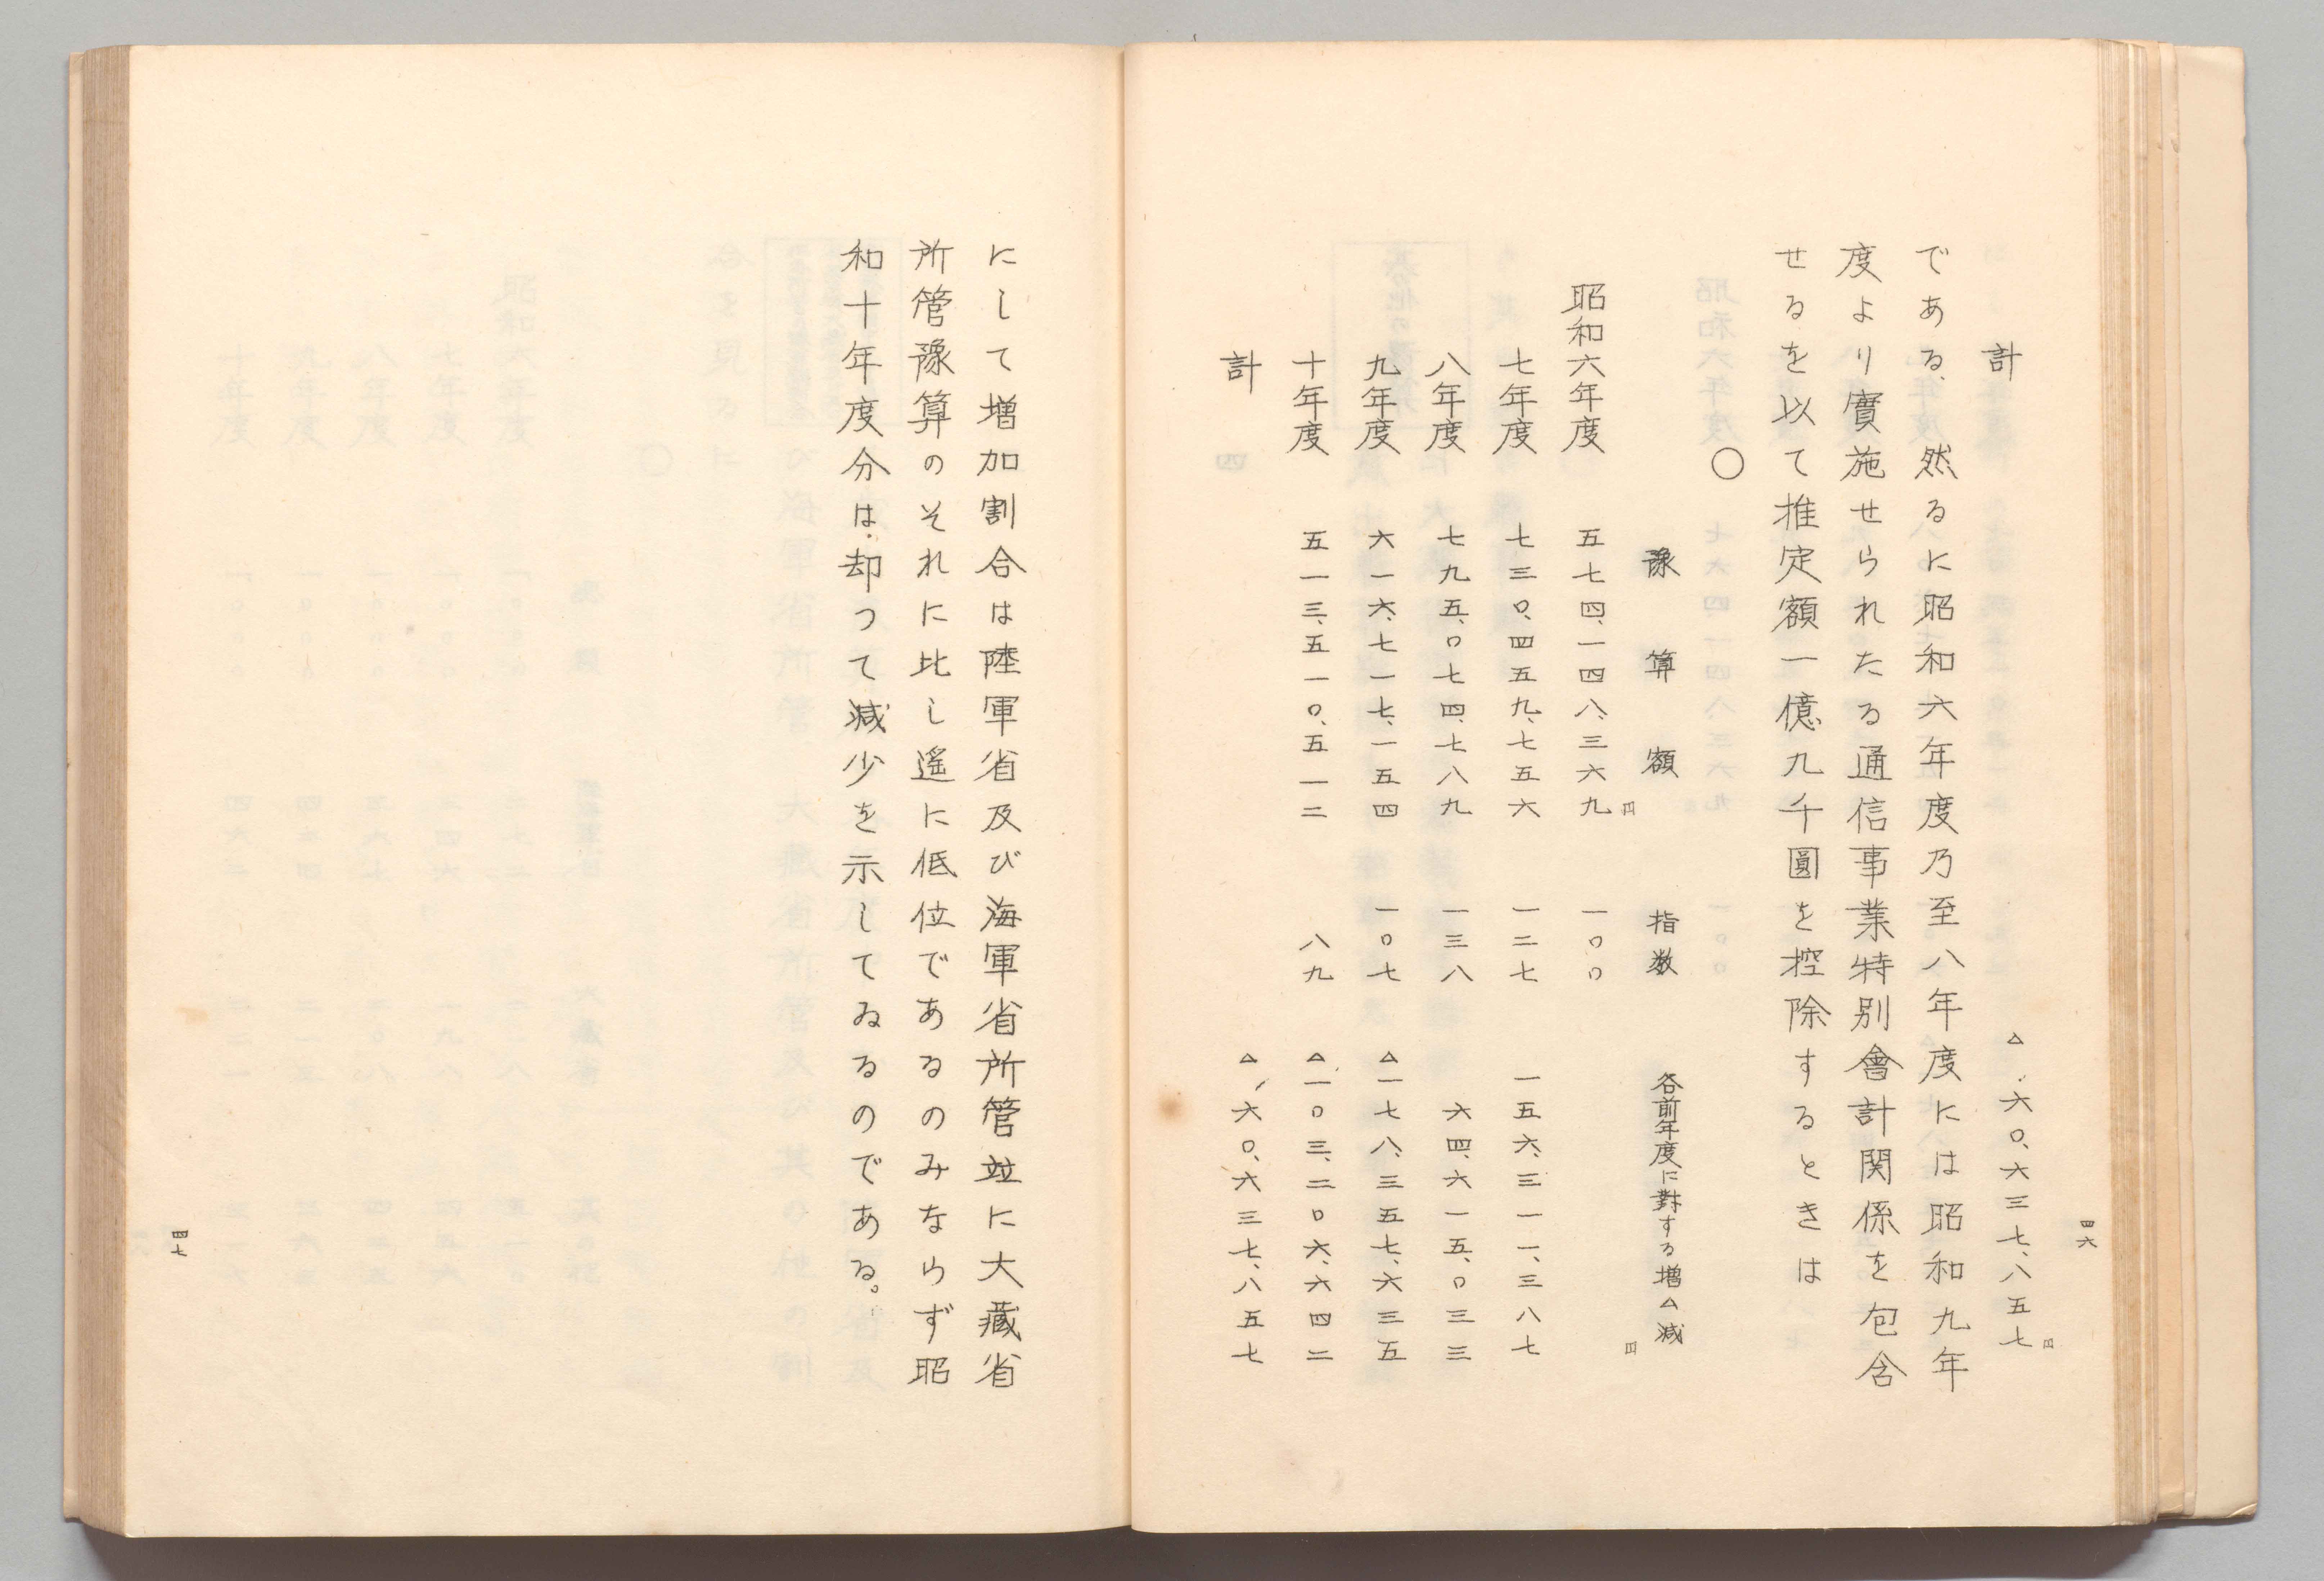 四六
計　△六〇、六三七、八五七円
である、然るに昭和六年度乃至八年度には昭和九年
度より實施せられたる通信事業特別會計関係を包含
せるを以て推定額一億九千圓を控除するときは
〇
豫算額　指数　各前年度に對する増△減
昭和六年度　五七四、一四八、三六九円　一〇〇　円
七年度　七三〇、四五九、七五六　一二七　一五六、三一一、三八七
八年度　七九五、〇七四、七八九　一三八　六四、六一五、〇三三
九年度　六一六、七一七、一五四　一〇七　△一七八、三五七、六三五
十年度　五一三、五一〇、五一二　八九　△一〇三、二〇六、六四二
計　△六〇、六三七、八五七
にして増加割合は陸軍省及び海軍省所管竝に大藏省
所管豫算のそれに比し遙に低位であるのみならず昭
和十年度分は却つて減少を示してゐるのである。
四七